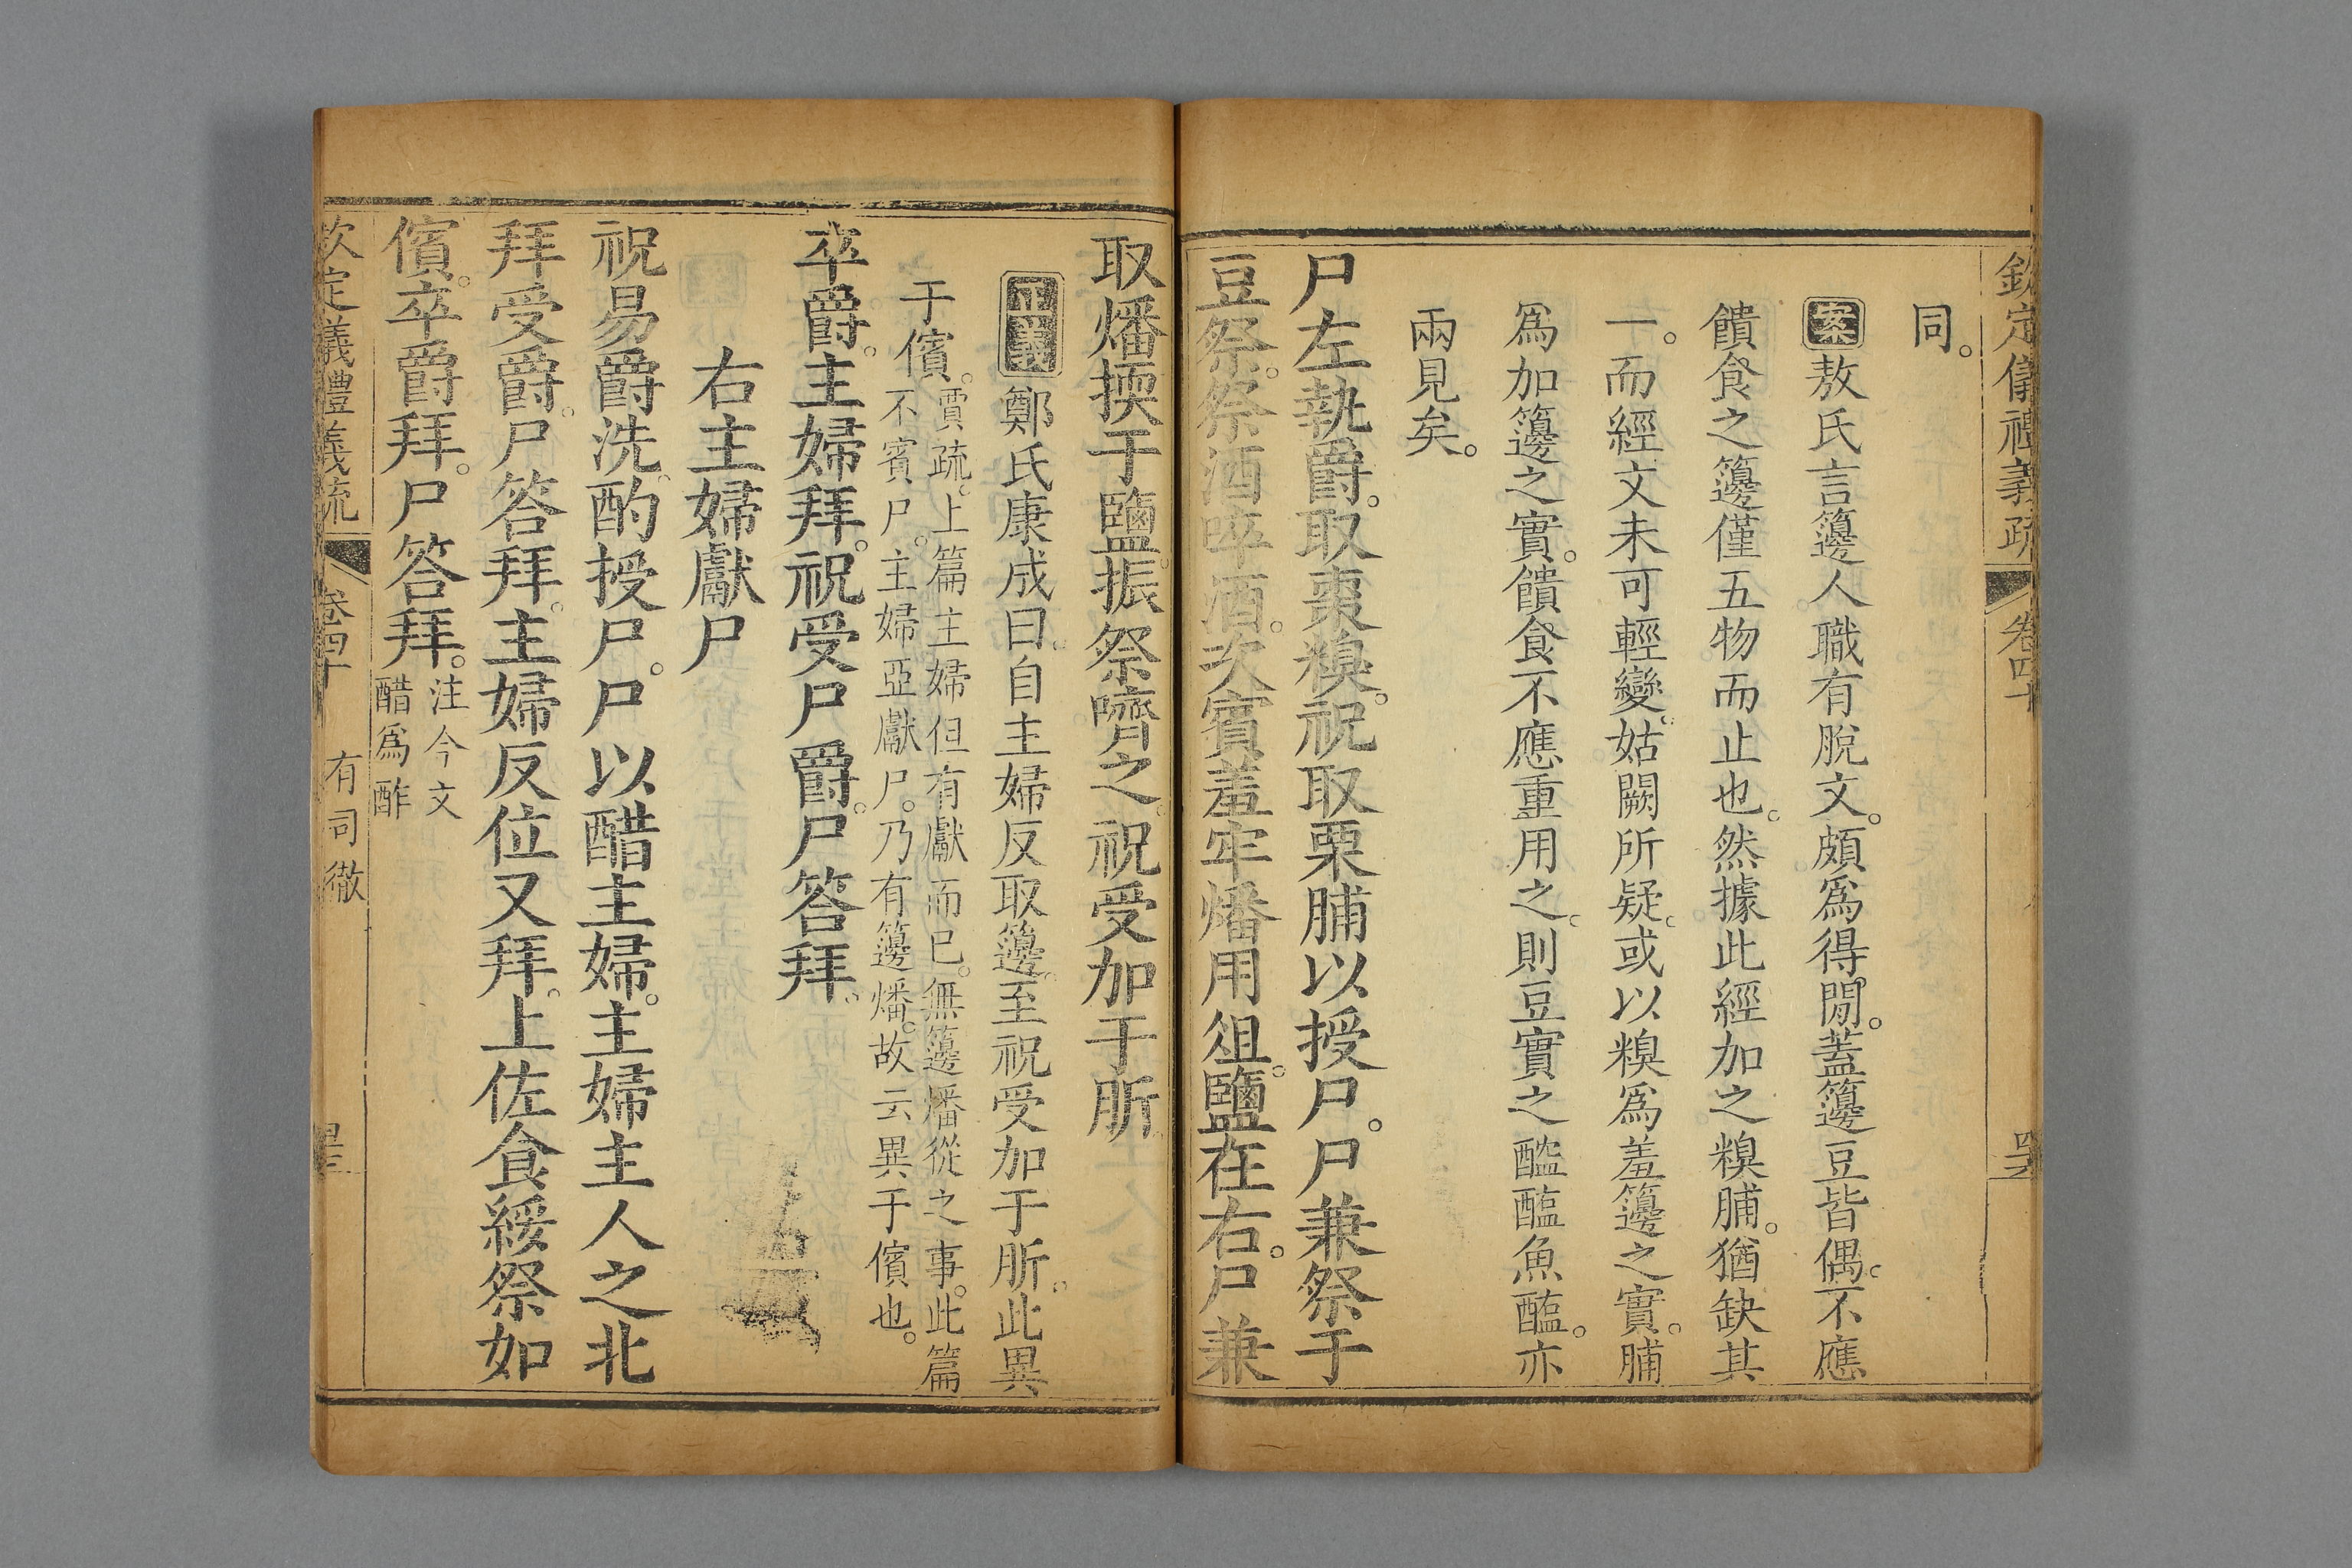 欽定儀禮義疏 卷四十
同。
案敖氏言籩人職有脫文。頗爲得閒。蓋籩豆皆偶。不應
饋食之籩僅五物而止也。然據此經加之糗脯。猶缺其
一。而經文未可輕變。姑闕所疑。或以糗爲羞籩之實。脯
爲加籩之實。饋食不應重用之。則豆實之醓醢魚醢。亦
兩見矣。
尸左執爵。取棗糗。祝取栗脯以授尸。尸兼祭于
豆祭。祭酒啐酒。次賓羞牢燔用俎。鹽在右。尸兼
取燔擩于鹽。振祭嚌之。祝受加于肵
正義鄭氏康成曰。自主婦反取籩。至祝受加于肵。此異
于儐。賈疏。上篇主婦但有獻而已。無籩燔從之事。此篇
不賓尸。主婦亞獻尸。乃有籩燔。故云異于儐也。
卒爵。主婦拜。祝受尸爵。尸答拜。
右主婦獻尸
祝易爵洗。酌授尸。尸以醋主婦。主婦主人之北
拜受爵。尸答拜。主婦反位又拜。上佐食綏祭如
儐。卒爵拜。尸答拜。注今文
醋爲酢
欽定儀禮義疏 卷四十 有司徹